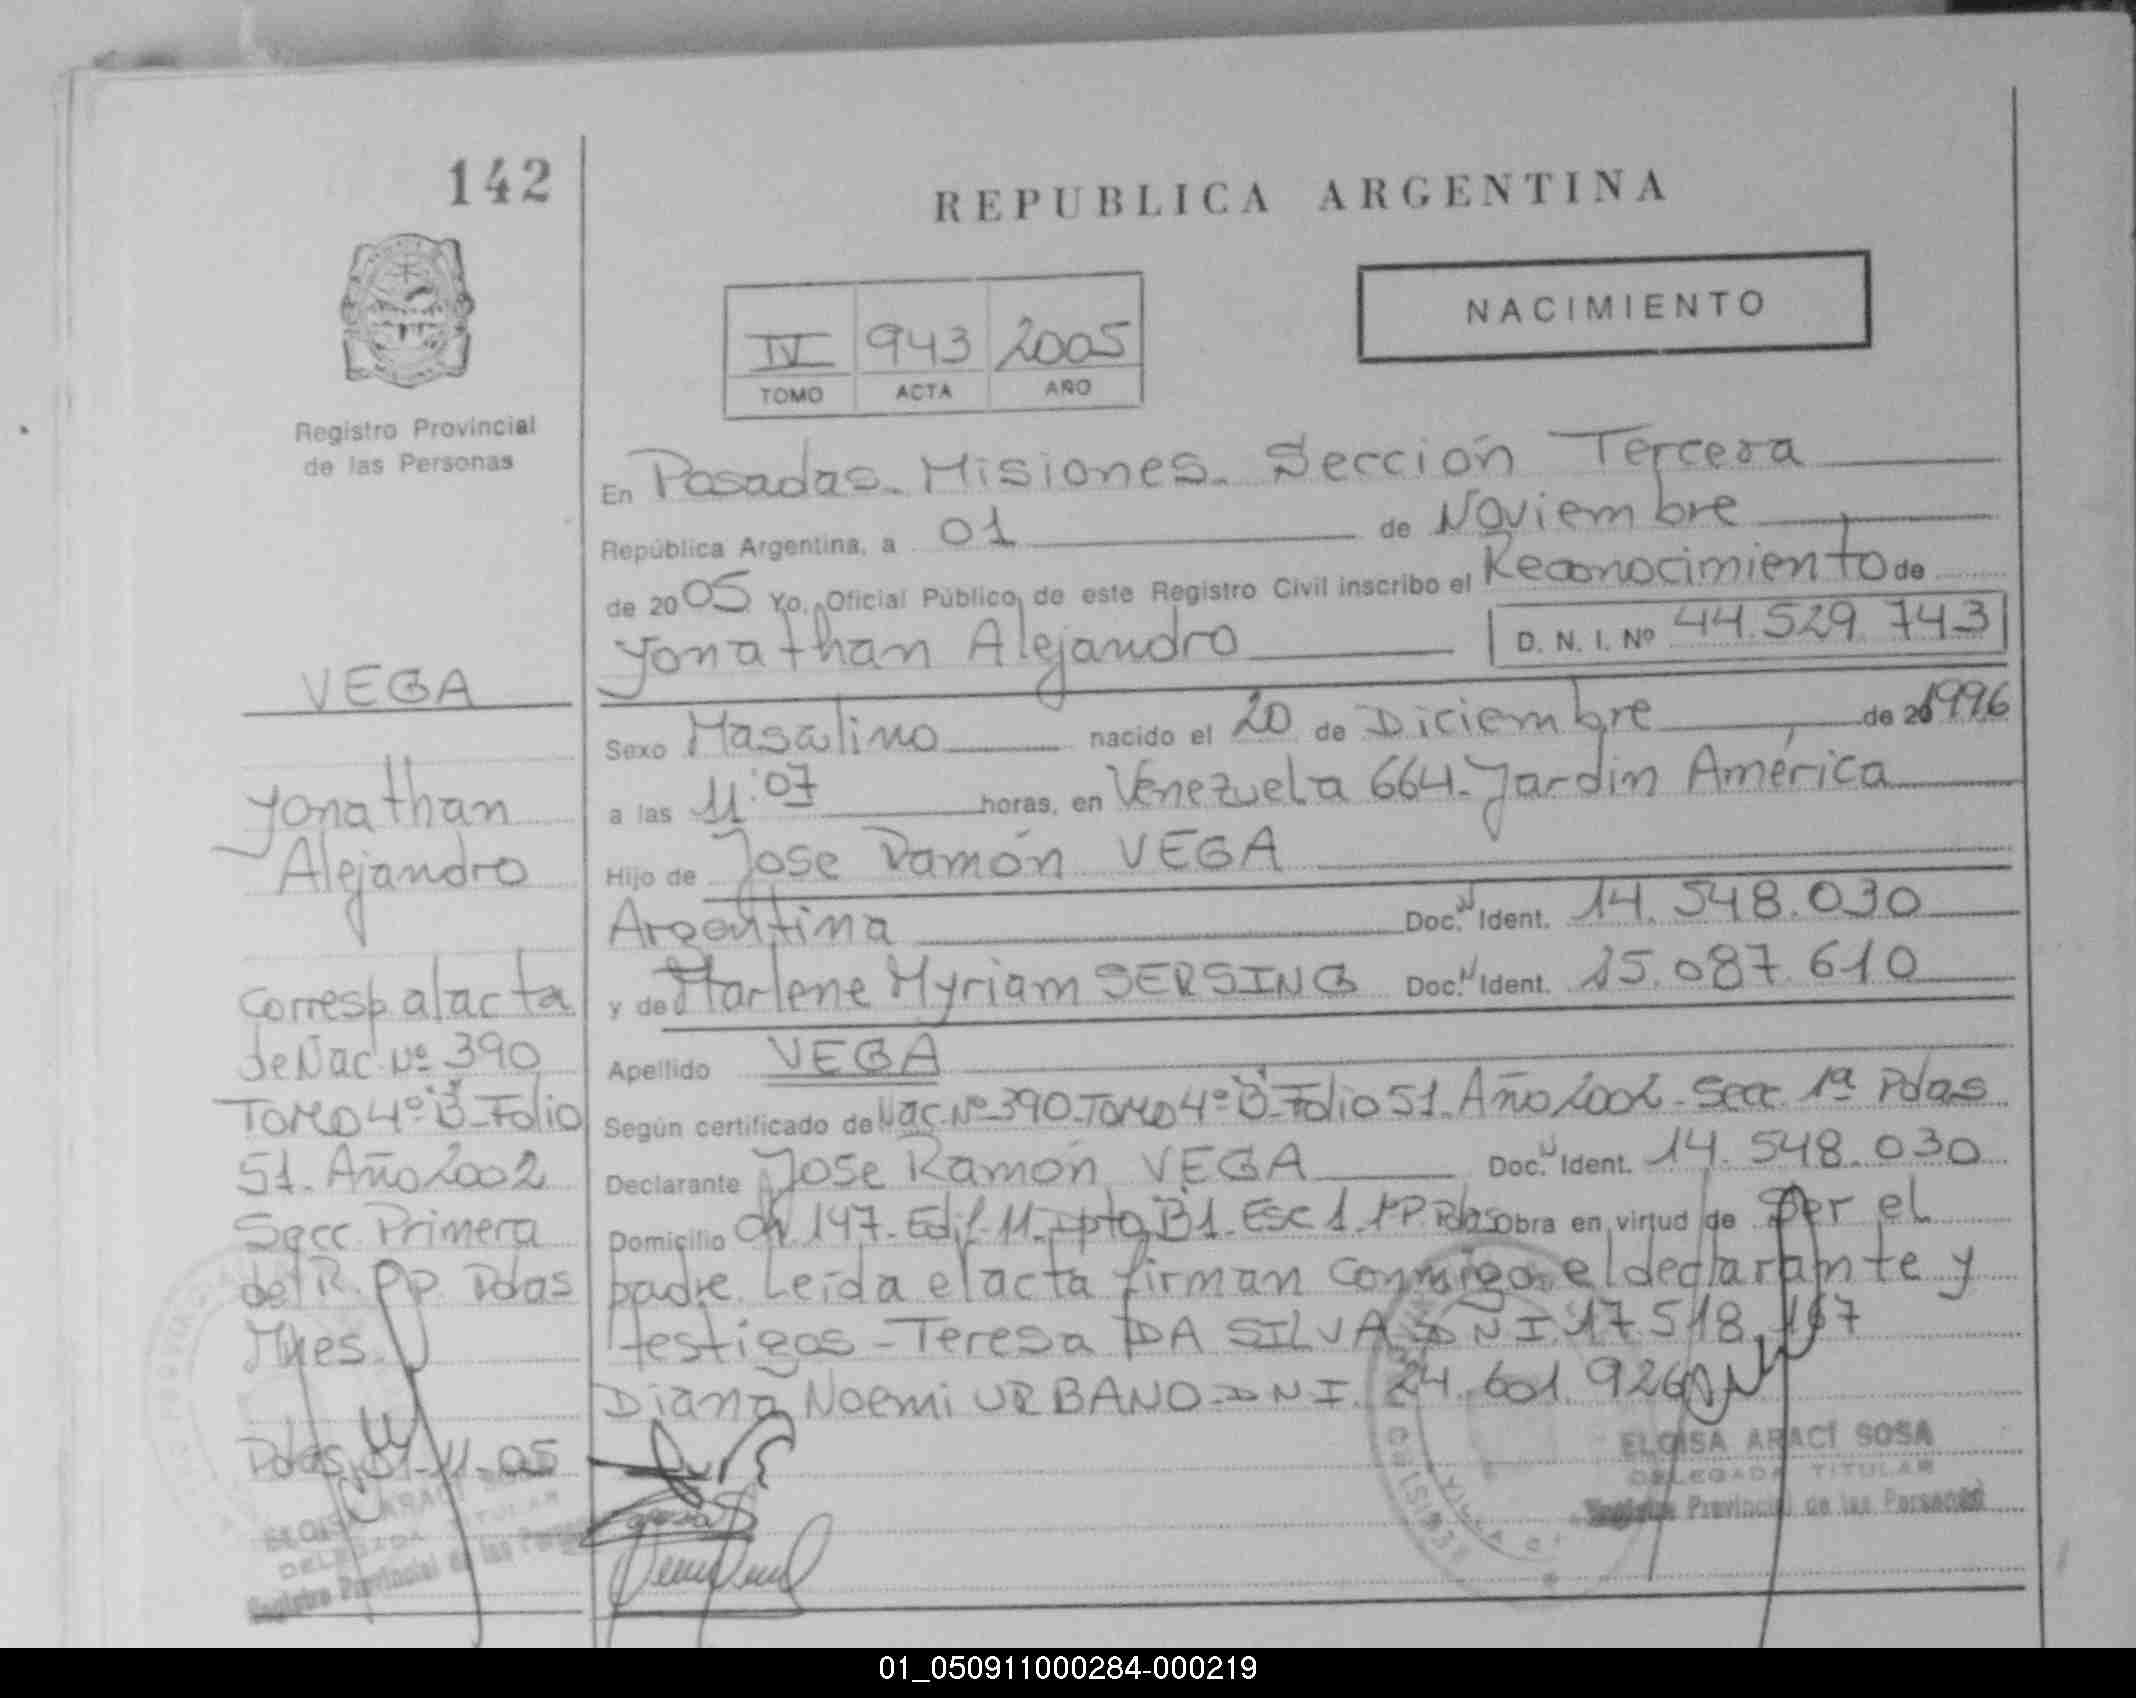 142
REPUBLICA ARGENTINA
NACIMIENTO
IV 943 2005
TOMO ACTA AÑO
Registro Provincial
de las Personas
En Posadas - Misiones - Sección Tercera
República Argentina, a 01 de Noviembre
de 2005 Yo, Oficial Público, de este Registro Civil inscribo el Reconocimiento de
Yonathan Alejandro D. N. I. Nº 44.529.743
Sexo Masculino nacido el 20 de Diciembre de 1996
a las 11:07 horas, en Venezuela 664 - Jardín América
Hijo de Jose Ramón VEGA
Argentina Doc. N Ident. 14.548.030
y de Marlene Myriam SERSING Doc. N Ident. 15.087.610
Apellido VEGA
Según certificado de Nac. Nº 390 - Tomo 4º "B" - Folio 51 - Año 2002 - Secc 1ª Pdas
Declarante Jose Ramón VEGA Doc. N Ident. 14.548.030
Domicilio Ch 147 - Edif. 11 - Dpto B1 - Esc 1 - 1º P. Pdas obra en virtud de Ser el
padre. Leída el acta firman conmigo el declarante y
testigos - Teresa DA SILVA DNI 17.518.167
Diana Noemi URBANO - DNI. 24.601.926
VEGA
Yonathan
Alejandro
Corresp al acta
de Nac Nº 390
Tomo 4º "B" - Folio
51 - Año 2002
Secc Primera
del R. PP. Pdas
Mnes.
Pdas, 01-11-05
ELOISA ARACI
DELEGADA TITULAR
Registro Provincial de las Personas
ELOISA ARACI SOSA
DELEGADA TITULAR
Registro Provincial de las Personas
01_050911000284-000219